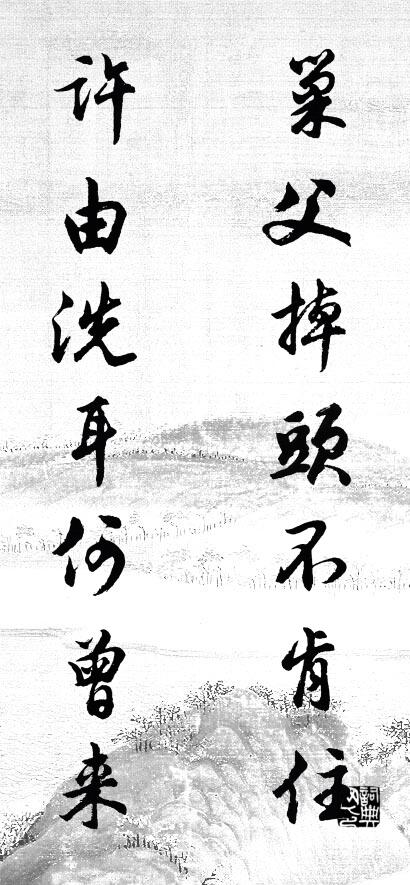 巢父掉頭不肯住
許由洗耳何曾来